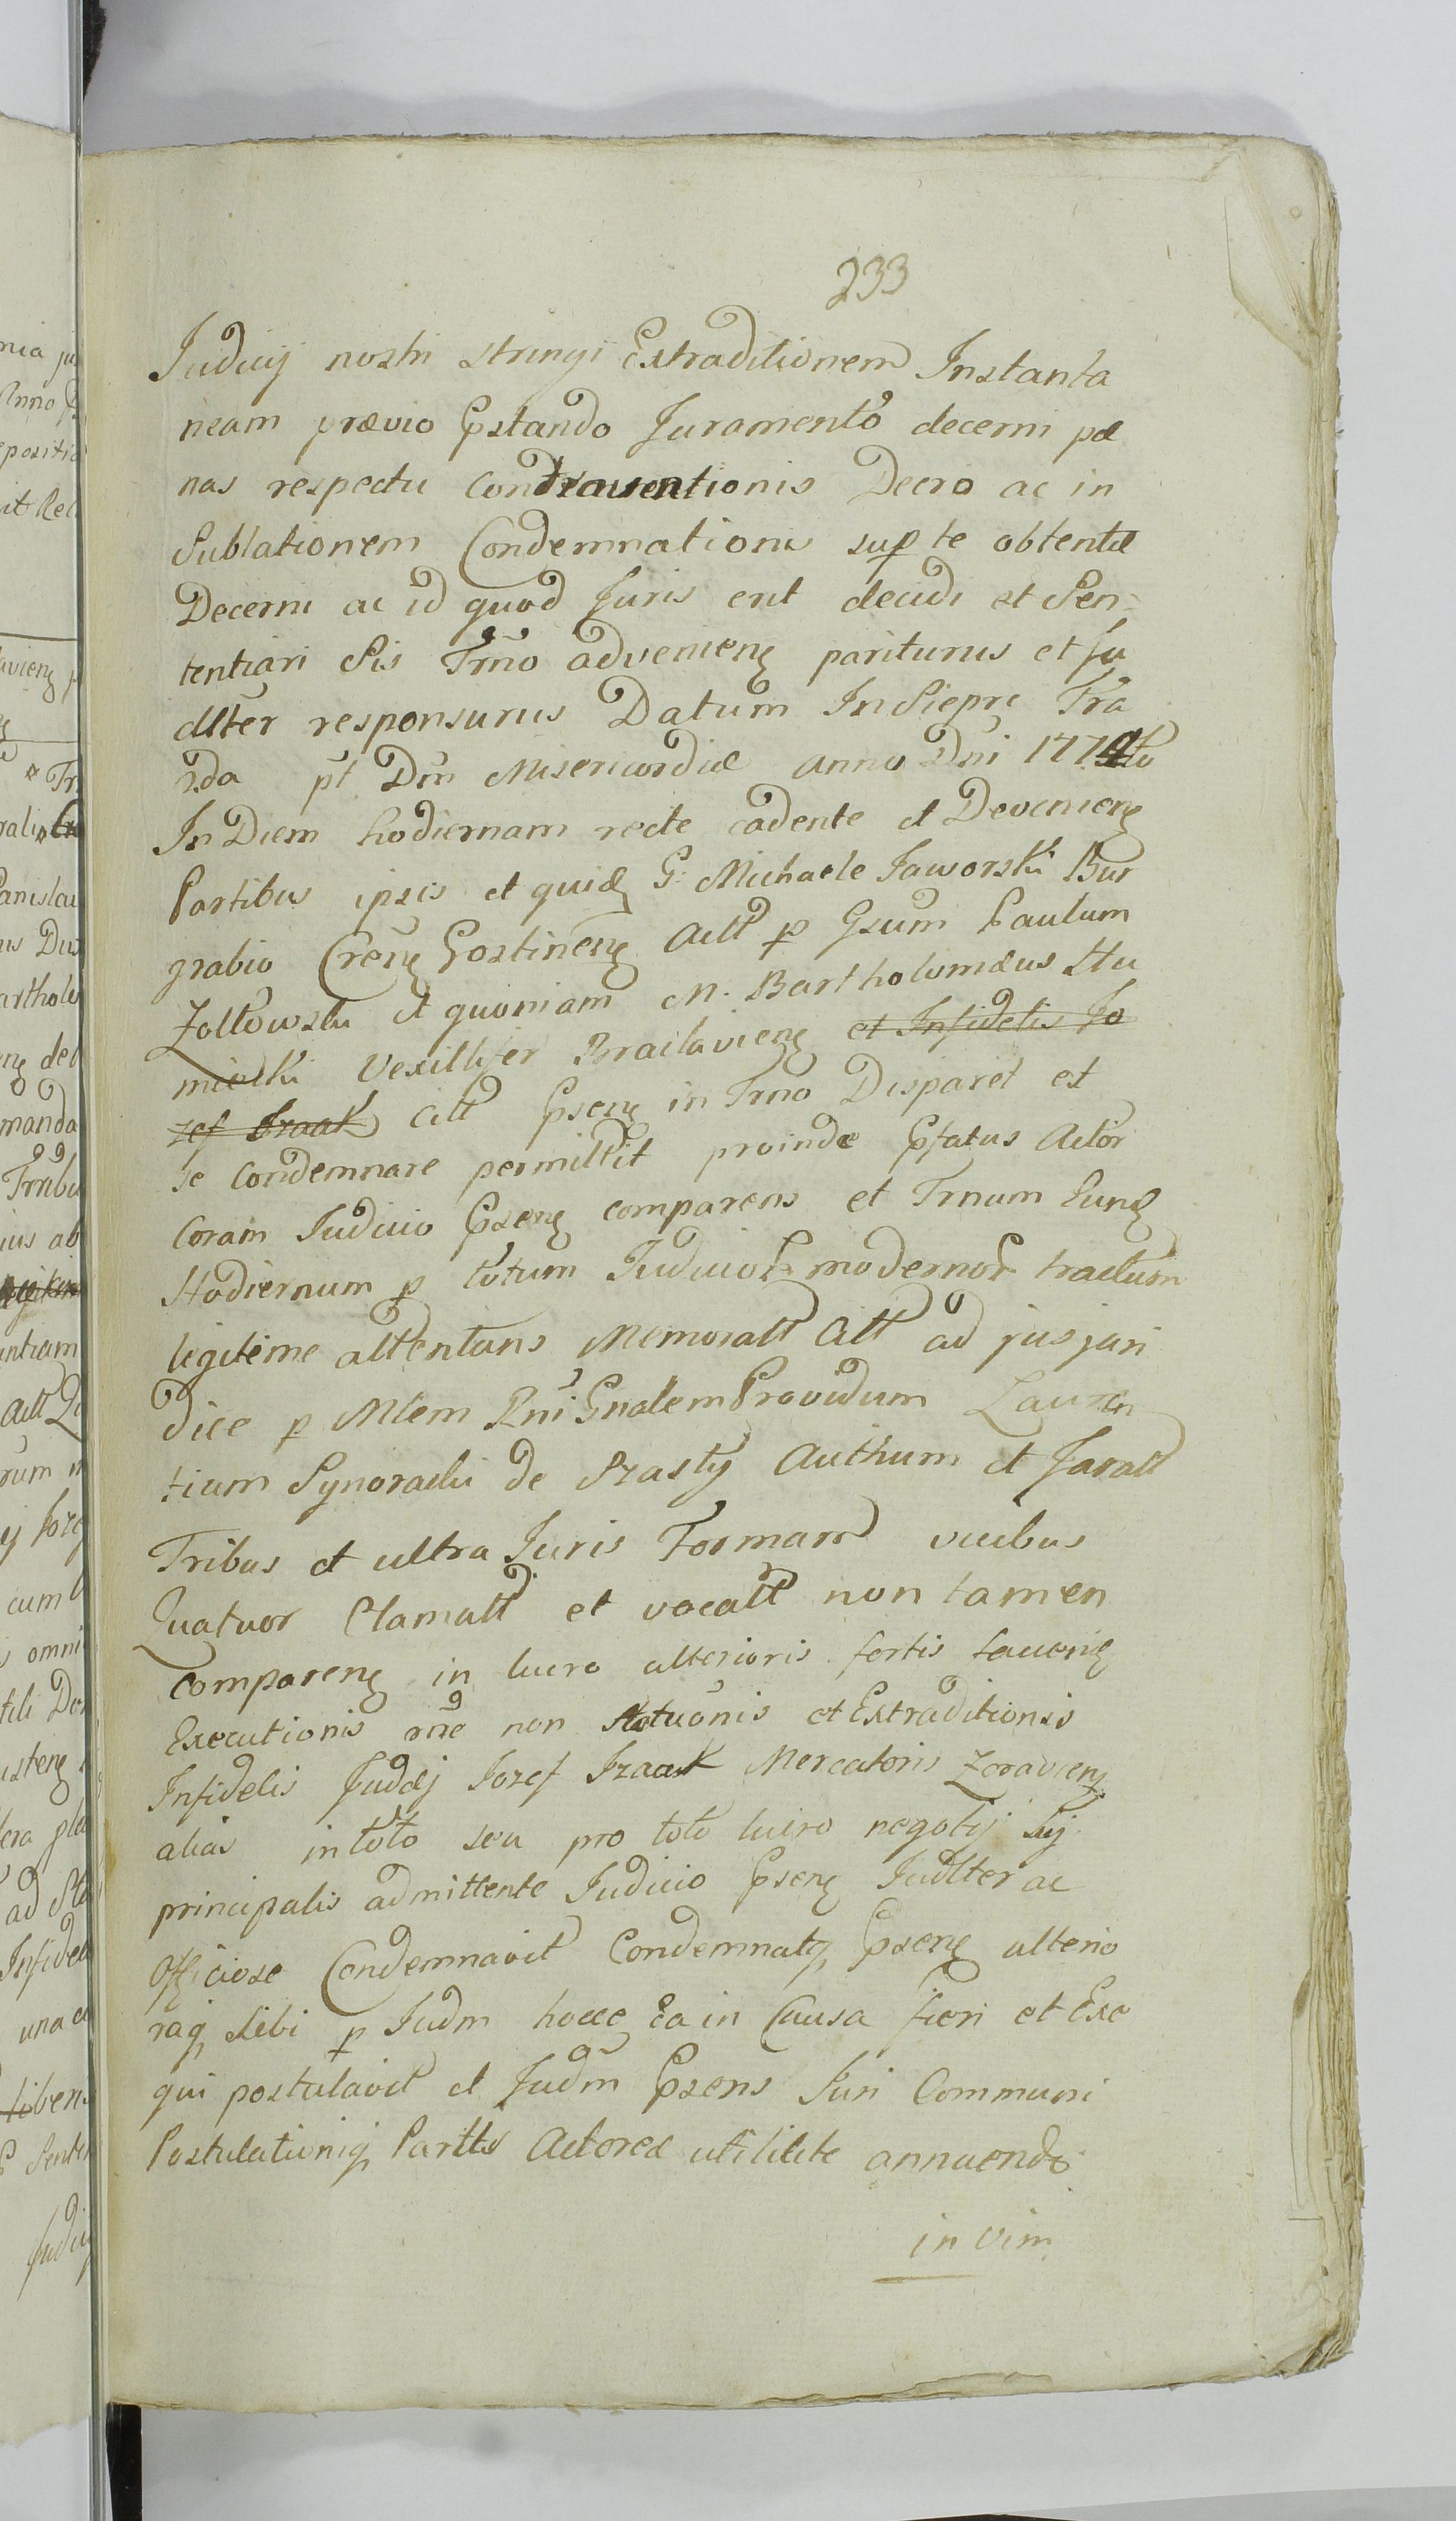 233
Judicij nostri stringi Extraditionem Instanta
neam prævio Pstando Juramento decerni pæ
nas respectu contraventionis Decro ac in
Sublationem Condemnationis sup te obtentæ
Decerni ac id quod Juris erit decidi et Sen=
tentiari Sis Trno advenienꝫ pariturus et Ju
dlter responsurus Datum In Siepre Fra
2da pt Dm Misericordiæ anno Dni 1774to
In Diem hodiernam recte cadente et Devenienꝫ
Partibus ipsis et quidꝫ G. Michaele Jaworski Bur
grabio Crenꝫ Gostinenꝫ Actt p Gsum Paulum
Zołtowski et quoniam M. Bartholomæus Stu
micki Vexillifer Brailavienꝫ et Infidelis Jo
zef Izaak Citt Psenꝫ in Trno Disparet et
se condemnare permittit proinde Pfatus Actor
coram Judicio Psenꝫ comparens et Trnum Eundꝫ
Hodiernum p totum Judicior modernor tractum
legitime attentans Memoratt Citt ad jus juri
dice p Mlem Rni Gnalem Providum Lauren
tium Synoracki de Szasty Authum et Juratt
Tribus et ultra Juris Formam vicibus
Quatuor Clamatt et vocatt non tamen
comparenꝫ in lucro ulterioris fortis favoris
Executionis rne non Statuonis et Extraditionis
Infidelis Judæj Jozef Izaak Mercatoris Zoravienꝫ
alias in toto seu pro toto lucro negotij sui
principalis admittente Judicio Psenꝫ Judlter ac
Officiose Condemnavit Condemnatqꝫ Psenꝫ ulterio
raqꝫ Sibi p Judm hocce Ea in Causa fieri et Exe
qui postulavit et Judm Psens Juri Communi
Postulationiqꝫ Partis Actoreæ utilitte annuendo
in vim